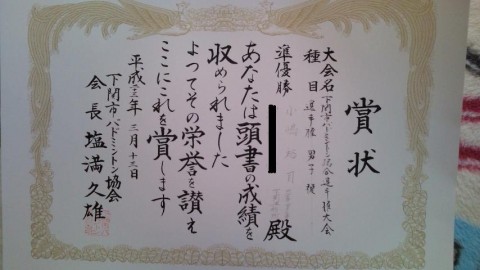 賞状
大会名 下関市バドミントン協会選手権大会
種目 選手権 男子複
準優勝
殿
あなたは頭書の成績を
収められました
よつてその栄誉を讃え
ここにこれを賞します
平成二三年三月十三日
下関市バドミントン協会
会長 塩満久雄